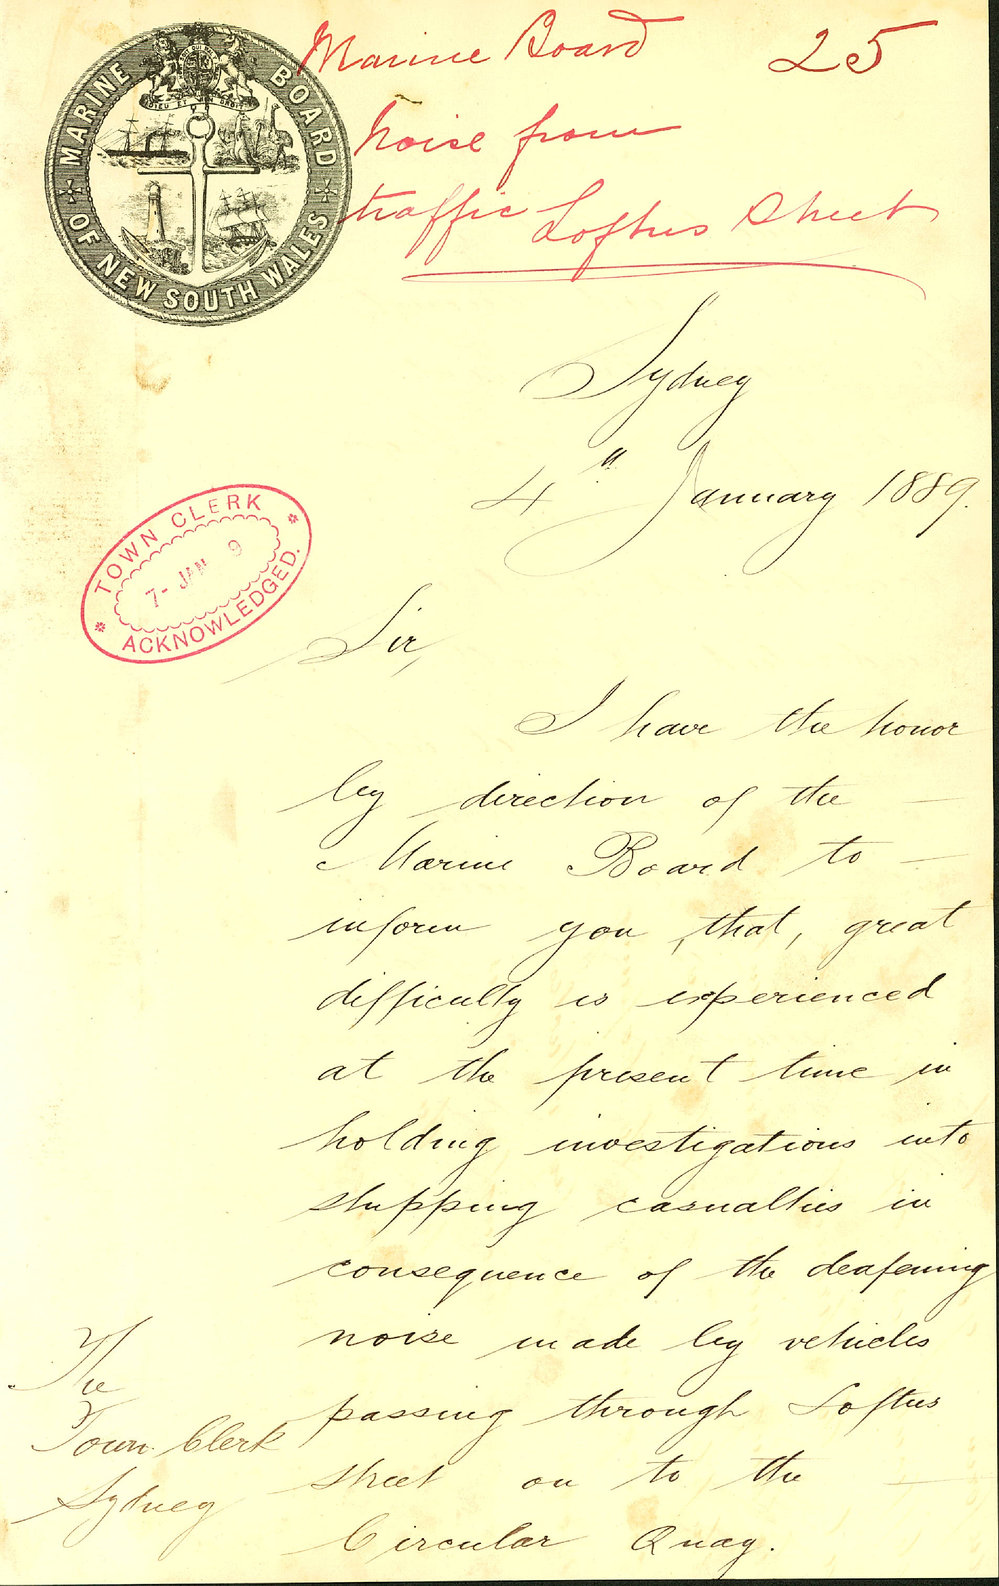 MARINE BOARD OF NEW SOUTH WALES
DIEU ET MON DROIT
Marine Board 25
Noise from
traffic Loftus Street
Sydney
4th January 1889.
TOWN CLERK
7- JAN 9
ACKNOWLEDGED.
Sir,
I have the honor
by direction of the
Marine Board to
inform you, that, great
difficulty is experienced
at the present time in
holding investigations into
shipping casualties in
consequence of the deafening
noise made by vehicles
passing through Loftus
street on to the
Circular Quay.
The
Town Clerk
Sydney